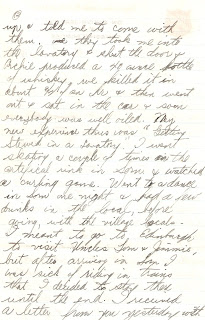 up & told me to come with
them. so they took me into
the lavatory & shut the door &
Archie produced a 40 oz. bottle
of whiskey, we killed it in
about ½ of an hr & then went
out & sat in the car & soon
everybody was well oiled. My
new experience thus was "Getting
Stewed in a Lavatory". I went
skating a couple of times on the
artificial rink in Lon & watched
a curling game. Went to a dance
in Lon one night & had a few
drinks in the local, before
going, with the village locals.
I meant to go to Edinburgh
to visit Uncles Tom & Jimmie,
but after arriving in Lon I
was sick of riding in trains
that I decided to stay there
until the end. I received
a letter from you yesterday with